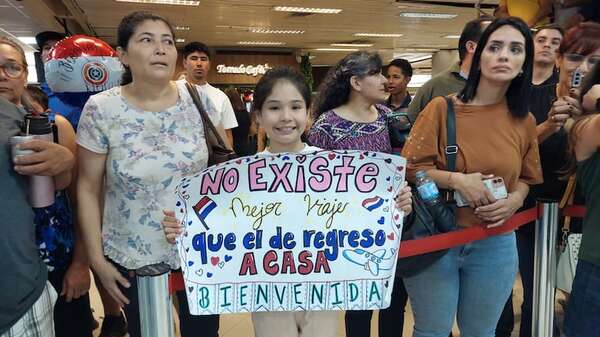 NO EXISTE
Mejor Viaje
que el de regreso
A CASA
BIENVENIDA